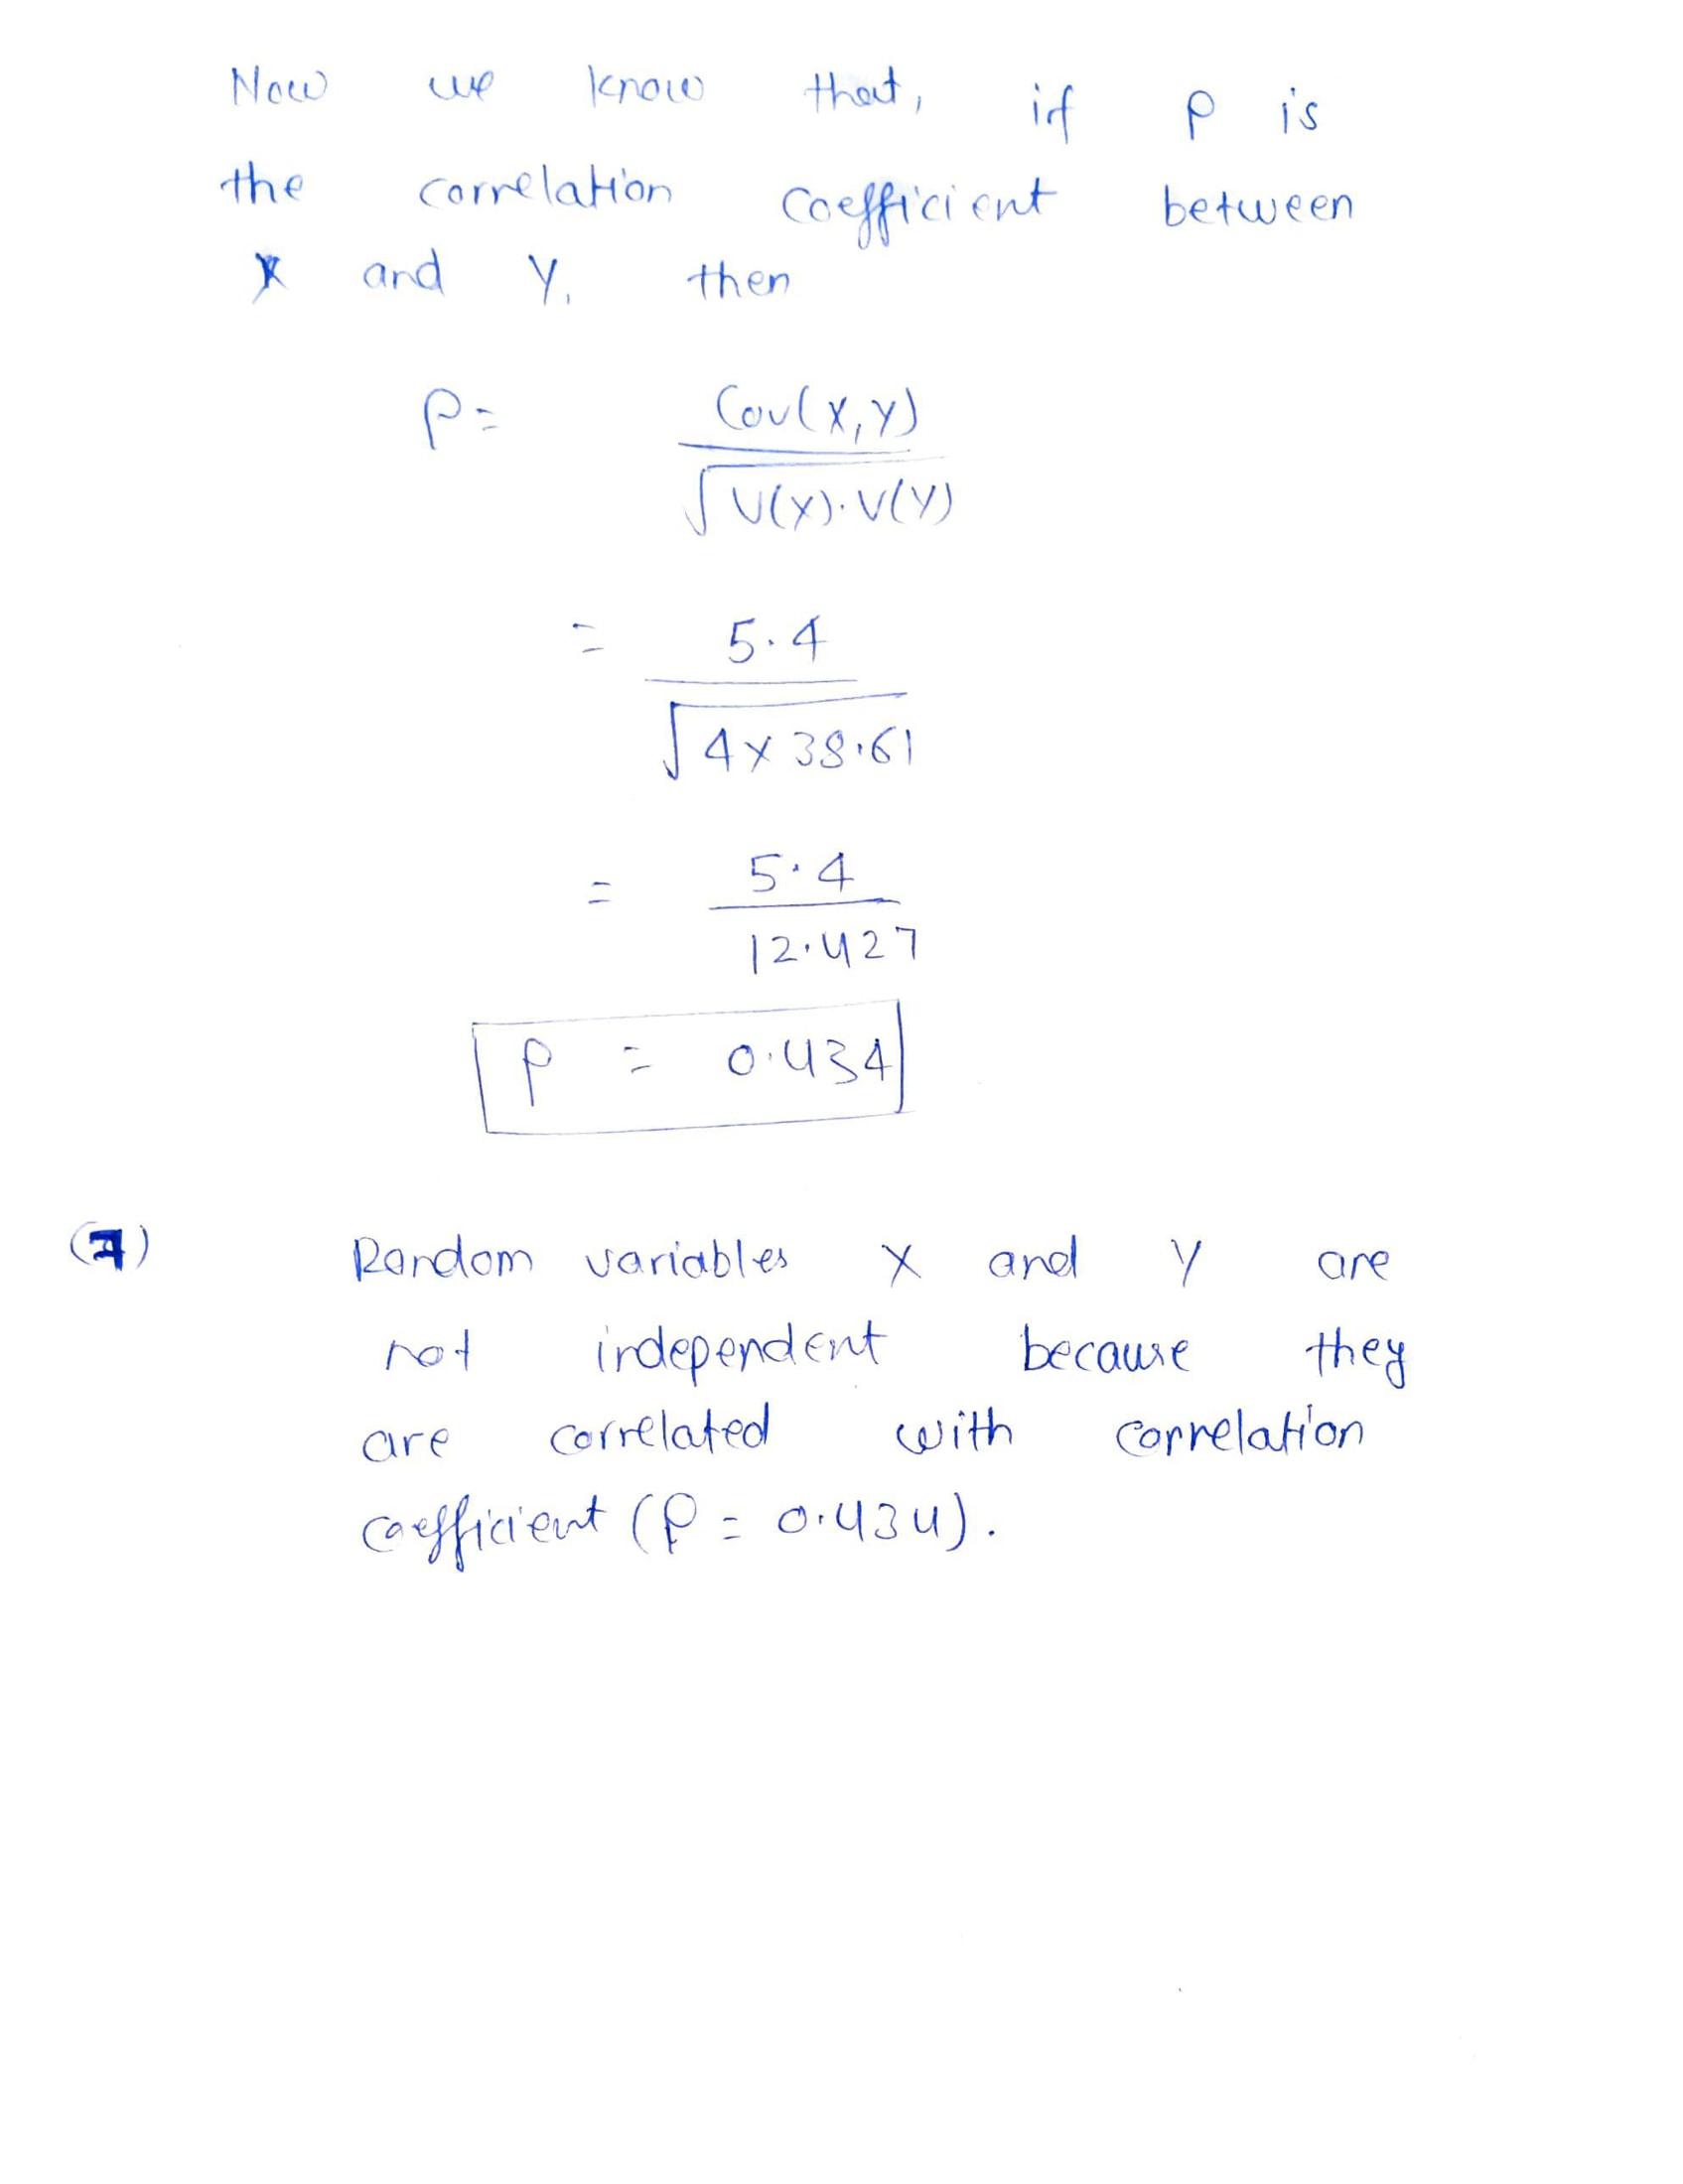 Now we know that, if ρ is
the correlation coefficient between
X and Y, then
ρ = Cov(X,Y)
√V(X).V(Y)
= 5.4
√4×38.61
= 5.4
12.427
ρ = 0.434
(7) Random variables X and Y are
not independent because they
are correlated with correlation
coefficient (ρ = 0.434).